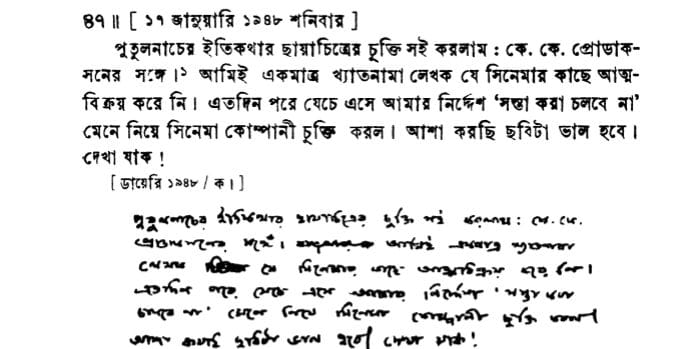 ৪৭॥ [ ১৭ জানুয়ারি ১৯৪৮ শনিবার ]
পুতুলনাচের ইতিকথার ছায়াচিত্রের চুক্তি সই করলাম : কে. কে. প্রোডাক-
সনের সঙ্গে।১ আমিই একমাত্র খ্যাতনামা লেখক যে সিনেমার কাছে আত্ম-
বিক্রয় করে নি। এতদিন পরে যেচে এসে আমার নির্দ্দেশ ‘সস্তা করা চলবে না’
মেনে নিয়ে সিনেমা কোম্পানী চুক্তি করল। আশা করছি ছবিটা ভাল হবে।
দেখা যাক !
[ ডায়েরি ১৯৪৮ / ক। ]
পুতুলনাচের ইতিকথার ছায়াচিত্রের চুক্তি সই করলাম : কে. কে.
প্রোডাকসনের সঙ্গে। আমিই একমাত্র খ্যাতনামা
লেখক যে সিনেমার কাছে আত্মবিক্রয় করে নি।
এতদিন পরে যেচে এসে আমার নির্দ্দেশ ‘সস্তা করা
চলবে না’ মেনে নিয়ে সিনেমা কোম্পানী চুক্তি করল।
আশা করছি ছবিটা ভাল হবে। দেখা যাক!